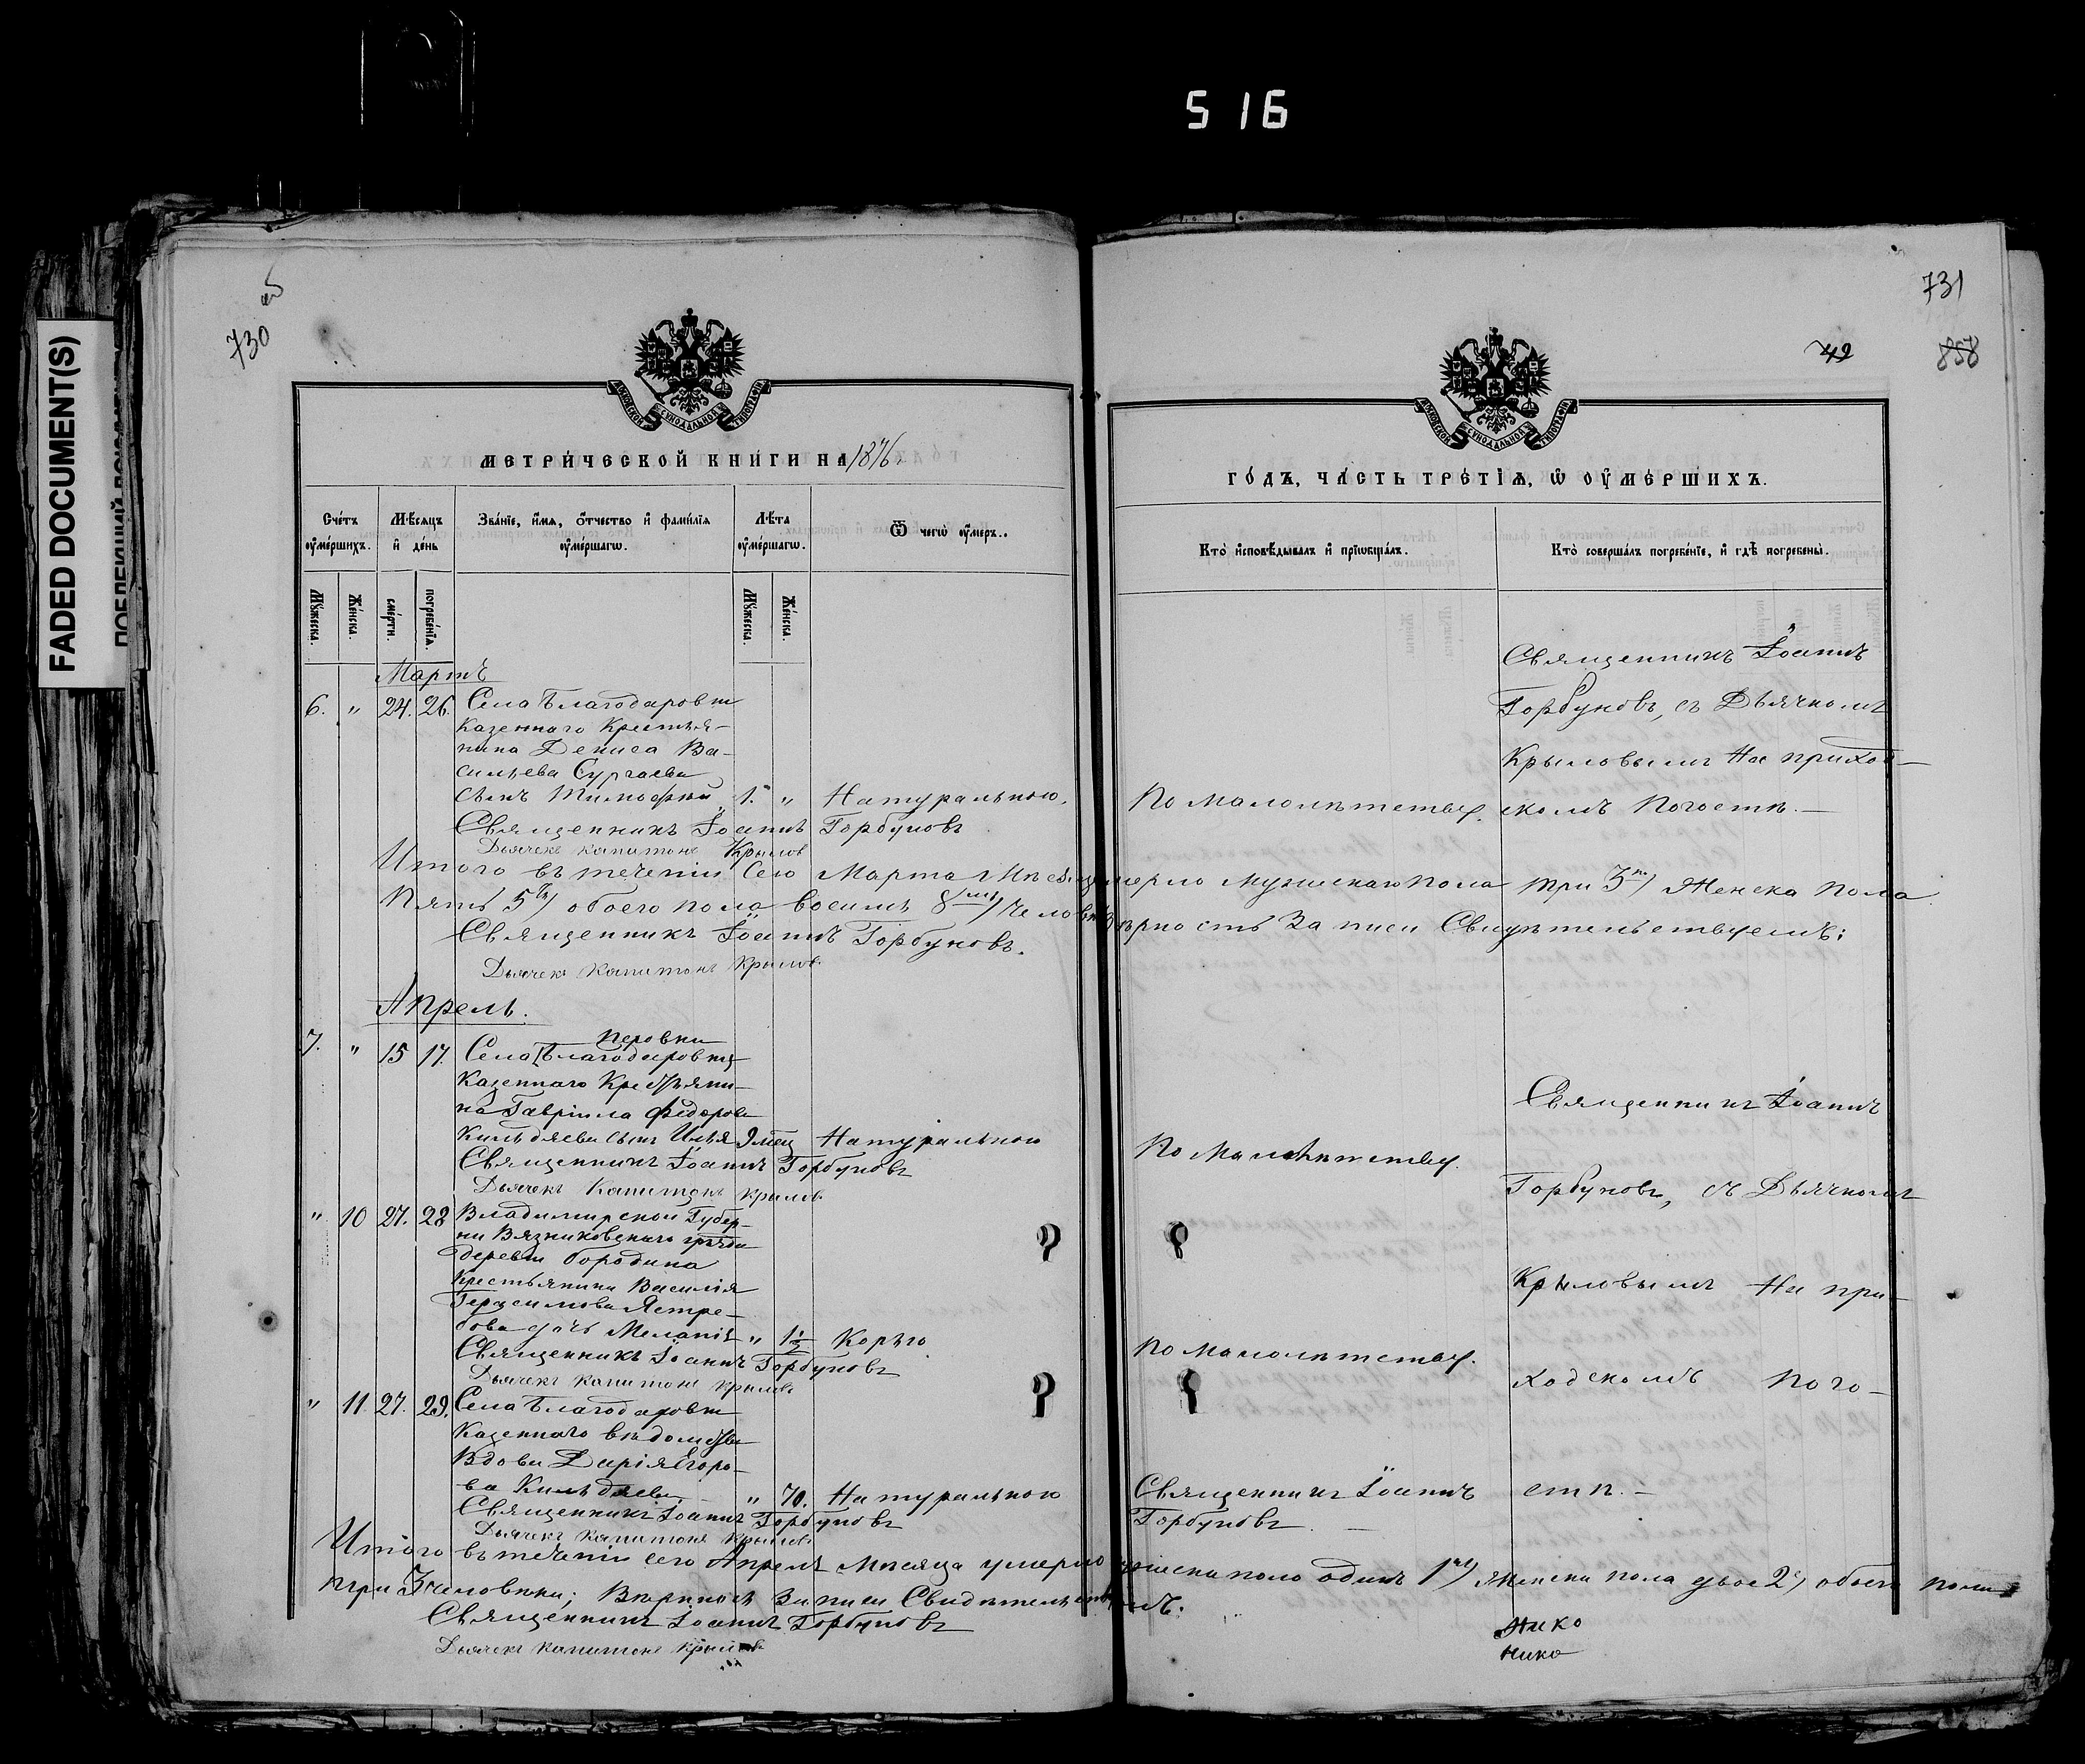 516
FADED DOCUMENT(S)
об
730
МОСКОВСКОЙ СУНОДАЛЬНОЙ ТИПОГРАФІИ
МЕТРИЧЕСКОЙ КНИГИ НА 1876
Счетъ умершихъ.
Мѣсяцъ и день
Званіе, имя, отчество и фамилія умершагѡ.
Лѣта умершагѡ.
Ѿ чегѡ умеръ.
Мужеска.
Женска.
смерти.
погребенія.
Мужеска.
Женска.
Мартъ
6. " 24. 26. Села Благодаровки
Казеннаго Крестья-
нина Дениса Ва-
сильева Сургаева
сынъ Тимофей 1. " Натуральною.
Священникъ Іоаннъ Горбуновъ
Дьячекъ Капитонъ Крыловъ
Итого въ теченіи Сего Марта Мѣсяца умерло Мужескаго пола три 3 Женска пола
Пять 5 обоего пола восемь 8 Человѣкъ вѣрность Записи Свидѣтельствуемъ:
Священникъ Іоаннъ Горбуновъ.
Дьячекъ Капитонъ Крыловъ
Апрель.
7. " 15 17. Села Благодаровки
Казеннаго Крестьяни-
на Гавріила Федорова
Кильдяева сынъ Илья 9 мѣсяц Натуральною
Священникъ Іоаннъ Горбуновъ
Дьячекъ Капитонъ Крыловъ
" 10 27. 28 Владимирской Губер-
ни Вязниковскаго уѣзда
деревни Бородина
Крестьянина Василія
Герасимова Ястре-
бова дочь Меланія " 1½ Корью
Священникъ Іоаннъ Горбуновъ
Дьячекъ Капитонъ Крыловъ
" 11. 27. 29. Села Благодаровки
Казеннаго вѣдомства
Вдова Дарія Егоро-
ва Кильдяева " 70. Натуральною
Священникъ Іоаннъ Горбуновъ
Дьячекъ Капитонъ Крыловъ
Итого въ теченіи сего Апреля Мѣсяца умерло мужеска пола одинъ 1 Женска пола двое 2 обоего пола
три 3 человѣка; Вѣрность Записи Свидѣтельствуемъ.
Священникъ Іоаннъ Горбуновъ
Дьячекъ Капитонъ Крыловъ
731
42
858
МОСКОВСКОЙ СУНОДАЛЬНОЙ ТИПОГРАФІИ
ГОДЪ, ЧАСТЬ ТРЕТІѦ, Ѡ ОУМЕРШИХЪ.
Кто исповѣдывалъ и пріѡбщалъ.
Кто совершалъ погребеніе, и гдѣ погребены.
По малолѣтству.
Священникъ Іоаннъ
Горбуновъ, съ Дьячкомъ
Крыловымъ На приход-
скомъ Погостѣ.-
По Малолѣтству.
Священникъ Іоаннъ
Горбуновъ, съ Дьячкомъ
Крыловымъ На при-
По малолѣтству.
ходскомъ Пого-
Священникъ Іоаннъ
Горбуновъ. -
стѣ.-
Нико
нико